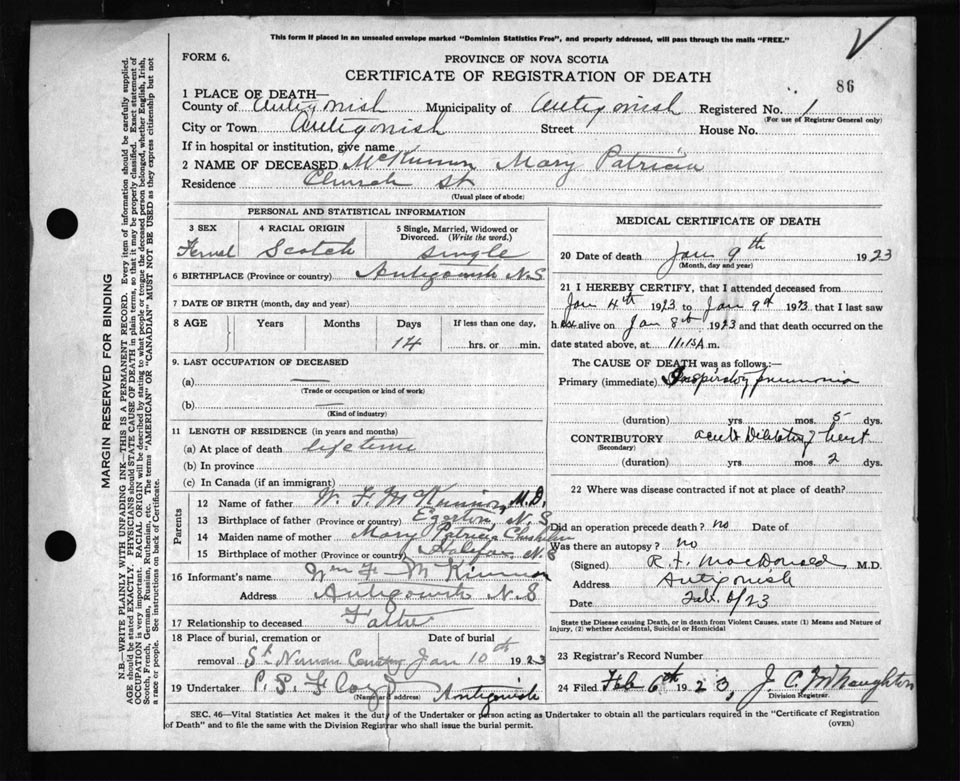 This form if placed in an unsealed envelope marked "Dominion Statistics Free", and properly addressed, will pass through the mails "FREE."
FORM 6.
PROVINCE OF NOVA SCOTIA
CERTIFICATE OF REGISTRATION OF DEATH
86
1 PLACE OF DEATH—
County of Antigonish Municipality of Antigonish Registered No. 1
(For use of Registrar General only)
City or Town Antigonish Street House No.
If in hospital or institution, give name
2 NAME OF DECEASED McKinnon Mary Patricia
Residence Church St
(Usual place of abode)
PERSONAL AND STATISTICAL INFORMATION
3 SEX 4 RACIAL ORIGIN 5 Single, Married, Widowed or Divorced. (Write the word.)
Femal Scotch single
6 BIRTHPLACE (Province or country) Antigonish N.S
7 DATE OF BIRTH (month, day and year)
8 AGE Years Months Days If less than one day,
14 hrs. or min.
9. LAST OCCUPATION OF DECEASED
(a) —
(Trade or occupation or kind of work)
(b) —
(Kind of industry)
11 LENGTH OF RESIDENCE (in years and months)
(a) At place of death lifetime
(b) In province
(c) In Canada (if an immigrant)
Parents
12 Name of father W. F. McKinnon, M.D.
13 Birthplace of father (Province or country) Egerton, N.S.
14 Maiden name of mother Mary Patricia
15 Birthplace of mother (Province or country) Halifax N.S
16 Informant's name Wm F McKinnon
Address Antigonish N.S
17 Relationship to deceased Father
18 Place of burial, cremation or removal Date of burial
St Ninian Cemetery Jan 10th 1923
19 Undertaker Antigonish
(Name or address)
MEDICAL CERTIFICATE OF DEATH
20 Date of death Jan 9th 1923
(Month, day and year)
21 I HEREBY CERTIFY, that I attended deceased from
Jan 4th 1923 to Jan 9th 1923 that I last saw
her alive on Jan 8th 1923 and that death occurred on the
date stated above, at 11.15 A.m.
The CAUSE OF DEATH was as follows:—
Primary (immediate) Inspiratory pneumonia
(duration) yrs. mos. 5 dys.
CONTRIBUTORY acute Dilatation of heart
(Secondary)
(duration) yrs. mos. 2 dys.
22 Where was disease contracted if not at place of death?
Did an operation precede death? no Date of
Was there an autopsy? no
(Signed) R. F. MacDonald M.D.
Address Antigonish
Date Feb. /23
State the Disease causing Death, or in death from Violent Causes, state (1) Means and Nature of
Injury, (2) whether Accidental, Suicidal or Homicidal
23 Registrar's Record Number
24 Filed Feb 6th 1923, J. C. McNaughton
Division Registrar.
SEC. 46—Vital Statistics Act makes it the duty of the Undertaker or person acting as Undertaker to obtain all the particulars required in the "Certificate of Registration
of Death" and to file the same with the Division Registrar who shall issue the burial permit. (OVER)
MARGIN RESERVED FOR BINDING
N.B.—WRITE PLAINLY WITH UNFADING INK—THIS IS A PERMANENT RECORD. Every item of information should be carefully supplied.
AGE should be stated EXACTLY. PHYSICIANS should STATE CAUSE OF DEATH in plain terms, so that it may be properly classified. Exact statement of
OCCUPATION is very important. RACIAL ORIGIN will be described by stating to what people or tongue the deceased person belonged, whether English, Irish,
Scotch, French, German, Russian, Ruthenian, etc. The terms "AMERICAN" or "CANADIAN" MUST NOT BE USED as they express citizenship but not
a race or people. See instructions on back of Certificate.